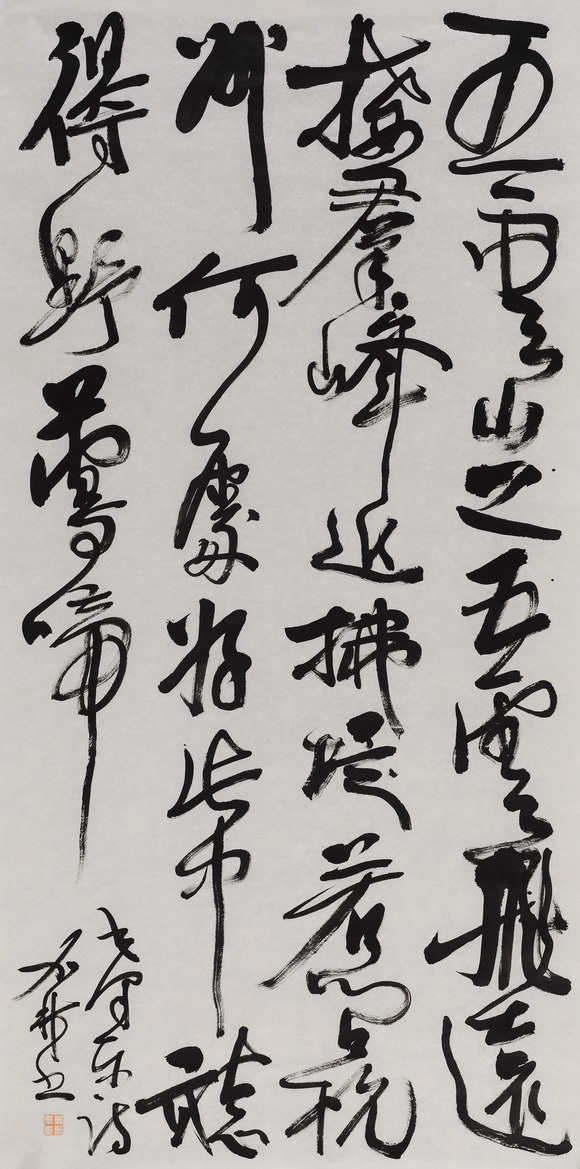 五雲山上五雲飛遠
接羣峰近拂堤若问杭
州何處好此中聽
得野鶯啼
毛泽东诗